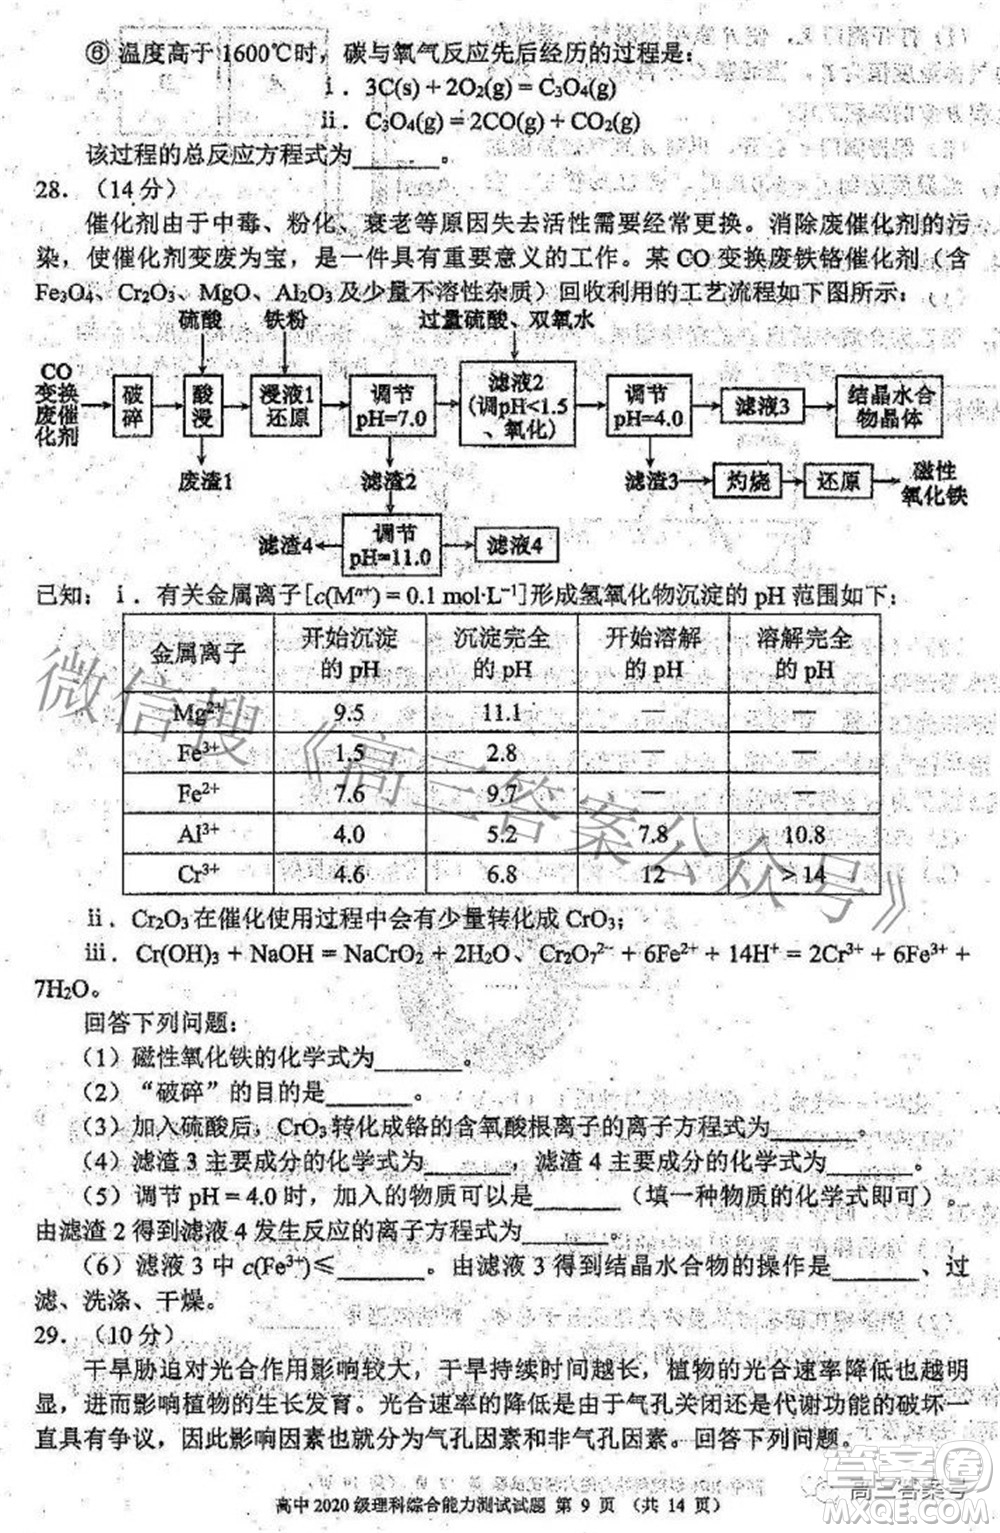 ⑥ 温度高于 1600℃时，碳与氧气反应先后经历的过程是：
ⅰ．3C(s) + 2O₂(g) = C₃O₄(g)
ⅱ．C₃O₄(g) = 2CO(g) + CO₂(g)
该过程的总反应方程式为______。
28．（14 分）
催化剂由于中毒、粉化、衰老等原因失去活性需要经常更换。消除废催化剂的污
染，使催化剂变废为宝，是一件具有重要意义的工作。某 CO 变换废铁铬催化剂（含
Fe₃O₄、Cr₂O₃、MgO、Al₂O₃ 及少量不溶性杂质）回收利用的工艺流程如下图所示：
硫酸 铁粉 过量硫酸、双氧水
CO
变换
废催
化剂
破碎
酸浸
浸液1
还原
调节
pH=7.0
滤液2
(调pH<1.5
、氧化)
调节
pH=4.0
滤液3
结晶水合
物晶体
废渣1
滤渣2
滤渣3
灼烧
还原
磁性
氧化铁
滤渣4
调节
pH=11.0
滤液4
已知：ⅰ．有关金属离子[c(Mⁿ⁺) = 0.1 mol·L⁻¹]形成氢氧化物沉淀的 pH 范围如下：
金属离子 开始沉淀的 pH 沉淀完全的 pH 开始溶解的 pH 溶解完全的 pH
Mg²⁺ 9.5 11.1 — —
Fe³⁺ 1.5 2.8 — —
Fe²⁺ 7.6 9.7 — —
Al³⁺ 4.0 5.2 7.8 10.8
Cr³⁺ 4.6 6.8 12 > 14
ⅱ．Cr₂O₃ 在催化使用过程中会有少量转化成 CrO₃；
ⅲ．Cr(OH)₃ + NaOH = NaCrO₂ + 2H₂O、Cr₂O₇²⁻ + 6Fe²⁺ + 14H⁺ = 2Cr³⁺ + 6Fe³⁺ +
7H₂O。
回答下列问题：
（1）磁性氧化铁的化学式为______。
（2）“破碎”的目的是______。
（3）加入硫酸后，CrO₃ 转化成铬的含氧酸根离子的离子方程式为______。
（4）滤渣 3 主要成分的化学式为______，滤渣 4 主要成分的化学式为______。
（5）调节 pH = 4.0 时，加入的物质可以是______（填一种物质的化学式即可）。
由滤渣 2 得到滤液 4 发生反应的离子方程式为______。
（6）滤液 3 中 c(Fe³⁺)≤______。由滤液 3 得到结晶水合物的操作是______、过
滤、洗涤、干燥。
29．（10 分）
干旱胁迫对光合作用影响较大，干旱持续时间越长，植物的光合速率降低也越明
显，进而影响植物的生长发育。光合速率的降低是由于气孔关闭还是代谢功能的破坏一
直具有争议，因此影响因素也就分为气孔因素和非气孔因素。回答下列问题。
高中 2020 级理科综合能力测试试题 第 9 页 （共 14 页）
微信搜《高三答案公众号》
高三答案号
答案圈
MXQE.COM